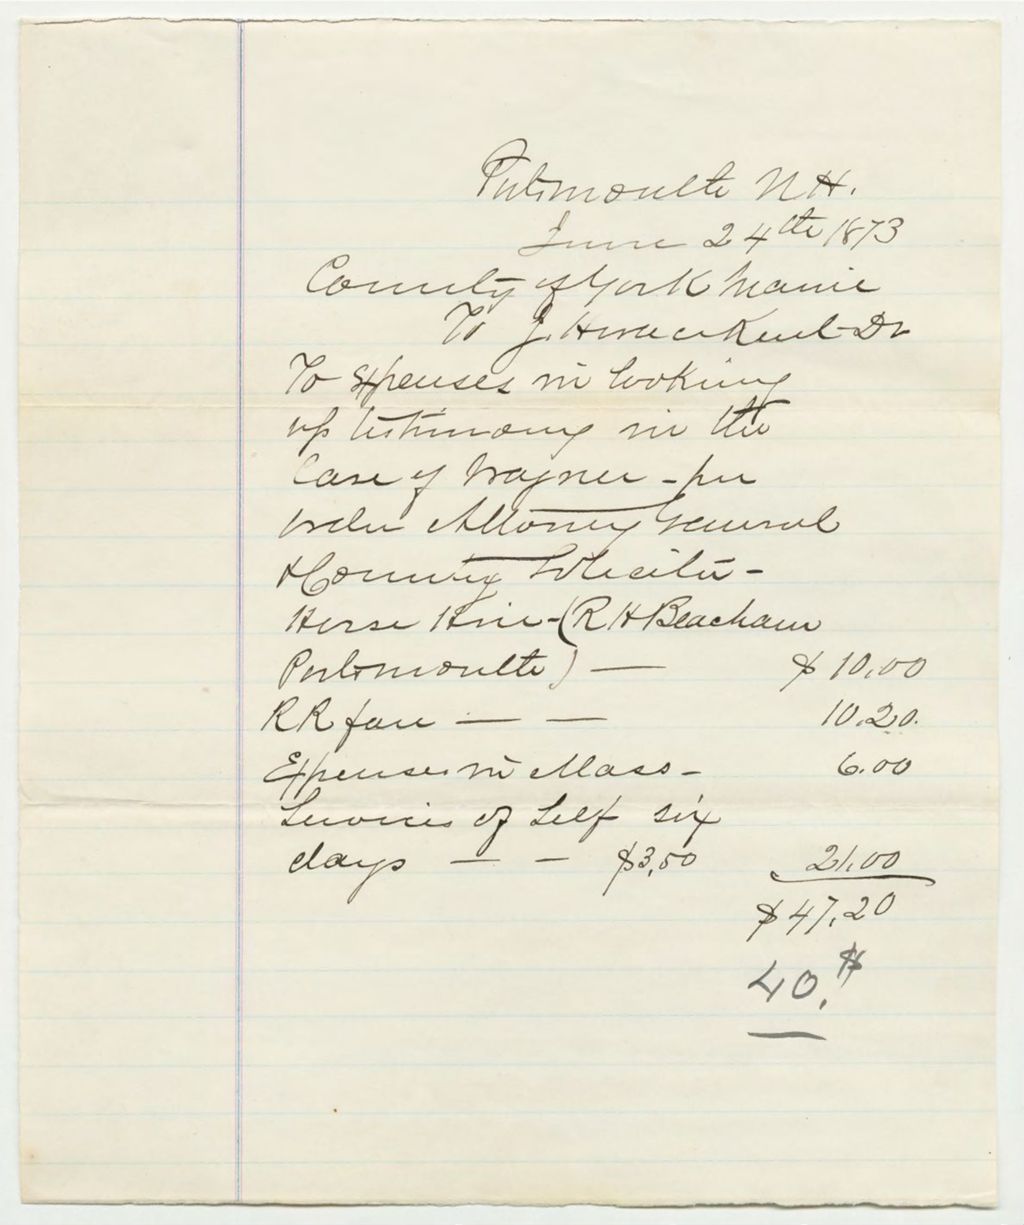 Portsmouth N H.
June 24th 1873
County of York Maine
To J. Horace Kent Dr
To Expenses in looking
up testimony in the
Case of Wagner - per
order Attorney General
& County Solicitor -
Horse Hire - (R H Beacham
Portsmouth) — $10.00
R R fare — — 10.20.
Expenses in Mass - 6.00
Services of Self six
days — — $3,50 21.00
$47.20
40.$